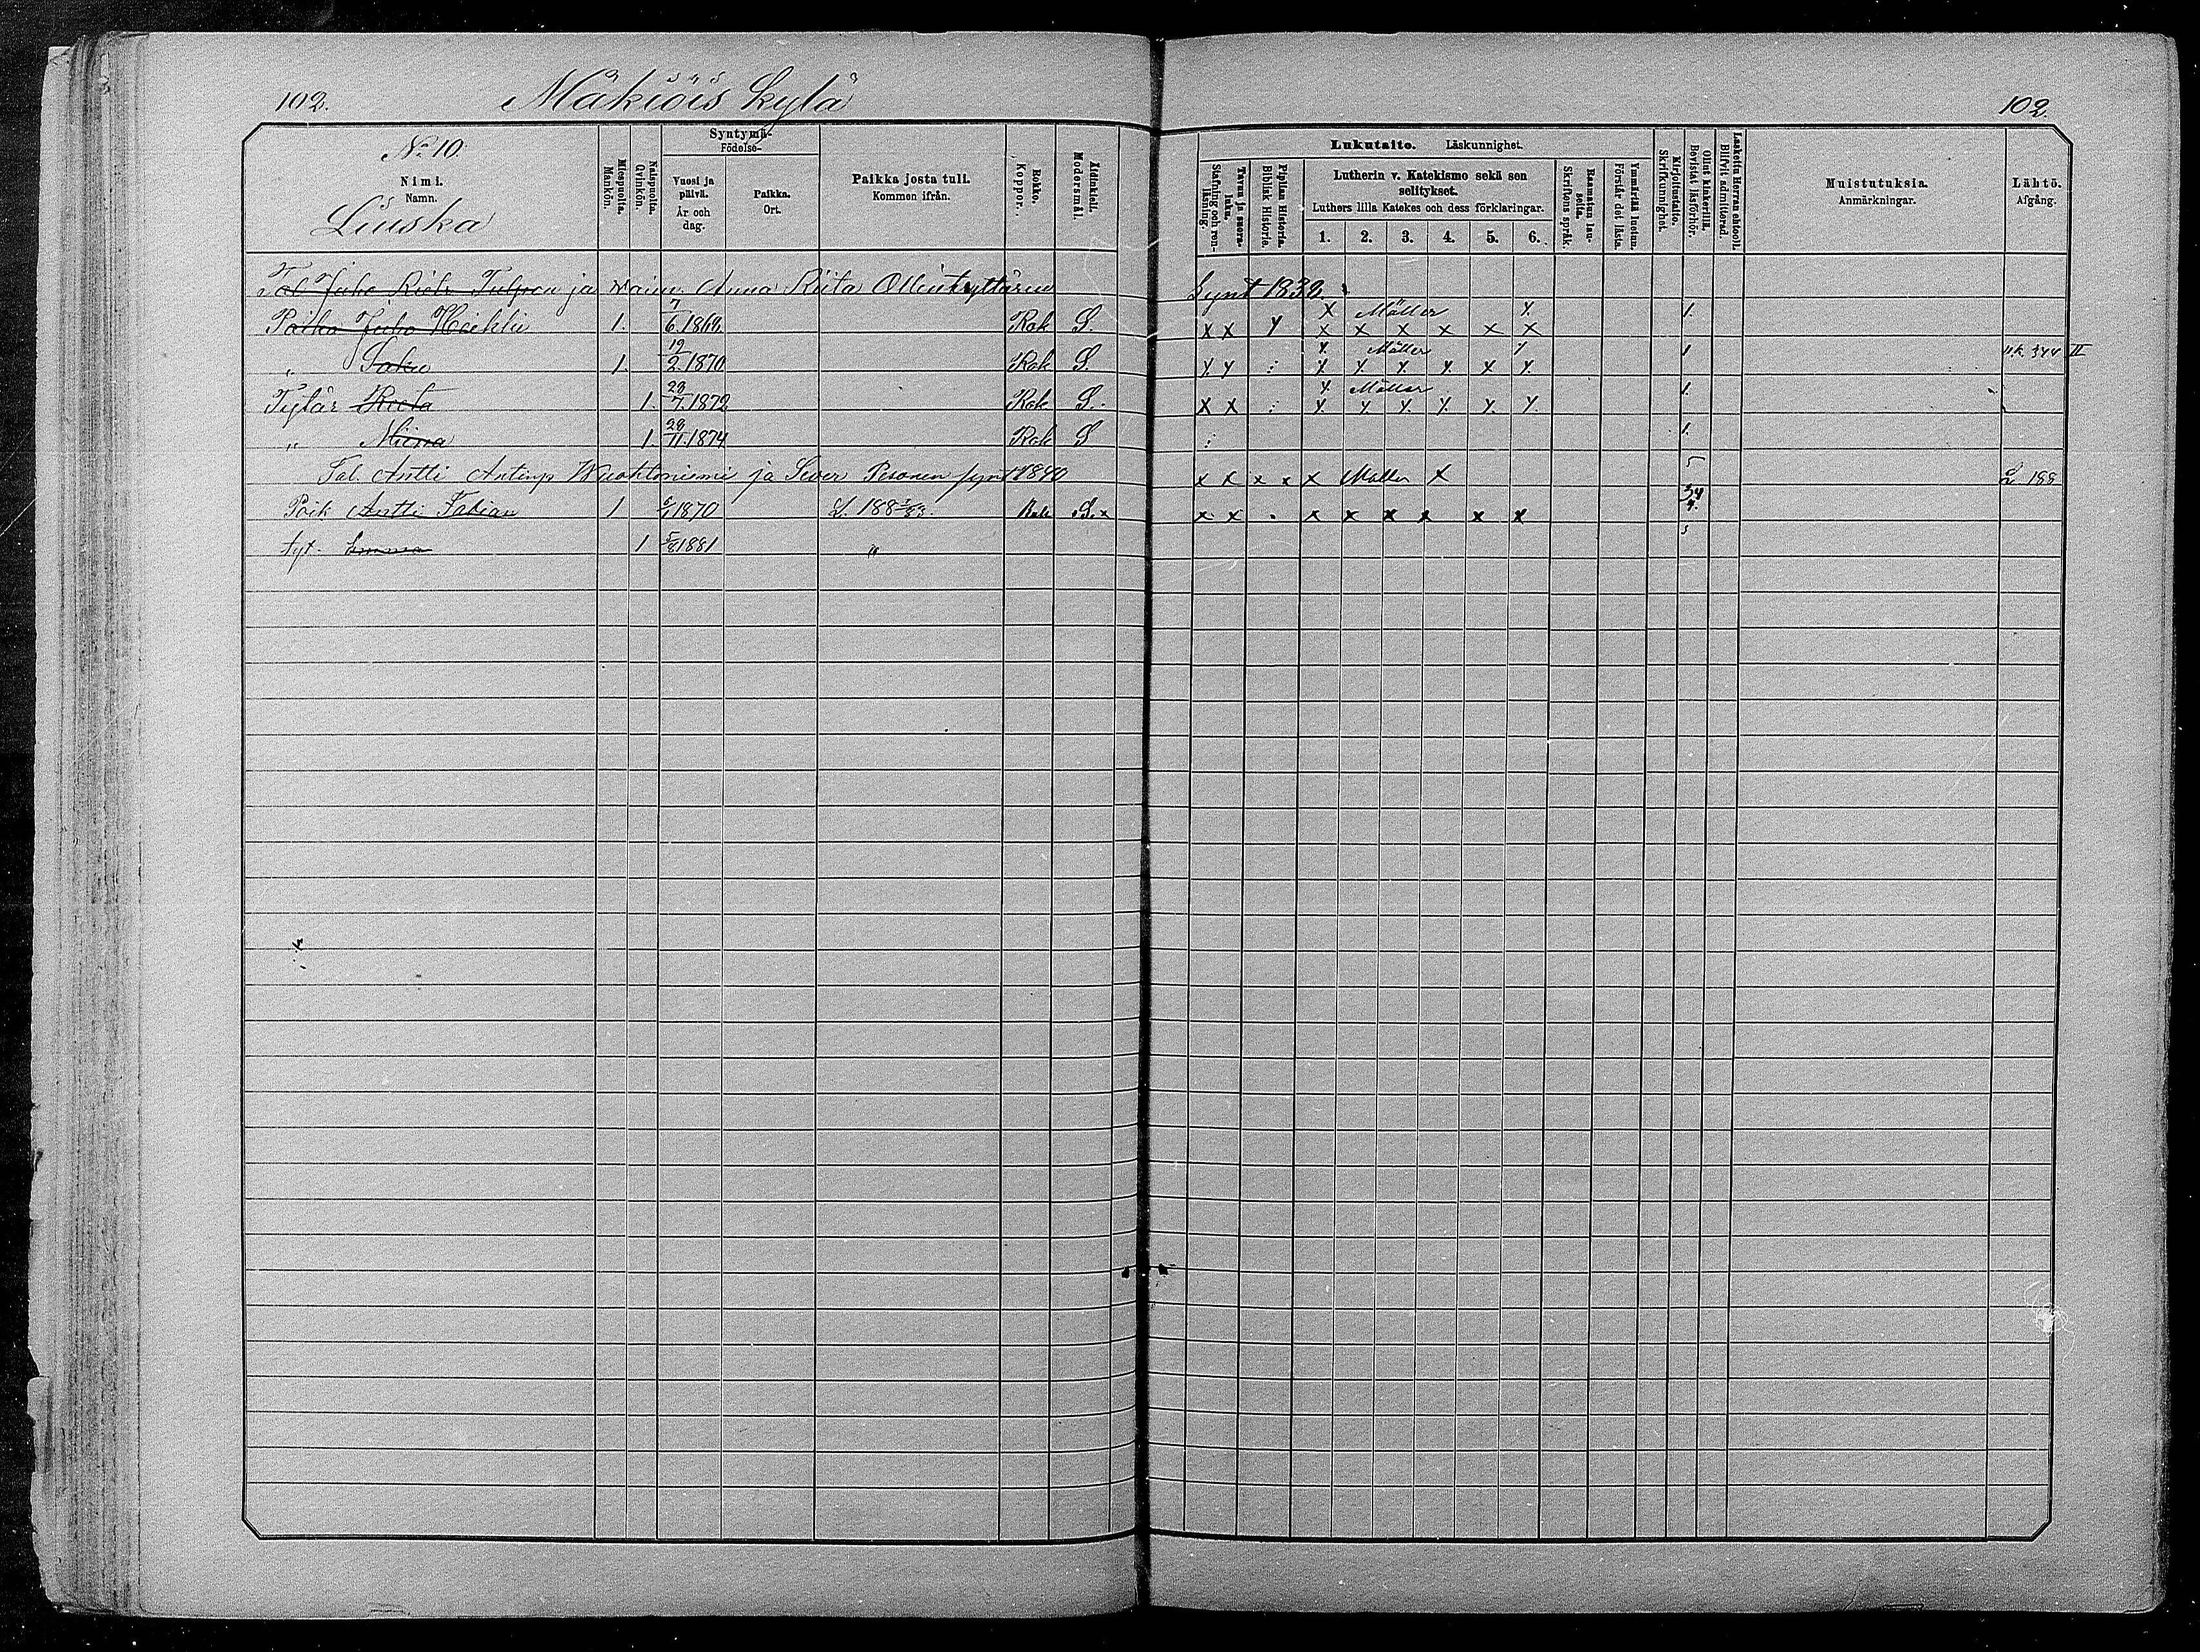 102. Mäkiöis kylä 102.
No 10.
Nimi.
Namn.
Liuska
Miespuolta.
Mankön.
Naispuolta.
Qvinkön.
Syntymä-
Födelse-
Vuosi ja päivä.
År och dag.
Paikka.
Ort.
Paikka josta tuli.
Kommen ifrån.
Rokko.
Koppor.
Äidinkieli.
Modersmål.
Lukutaito. Läskunnighet.
Tavuu ja suora-luku.
Stafning och ren-läsning.
Piplian Historia.
Biblisk Historie.
Lutherin v. Katekismo sekä sen selitykset.
Luthers lilla Katekes och dess förklaringar.
1. 2. 3. 4. 5. 6.
Raamatun lau-seita.
Skriftens språk.
Ymmärtää luetun.
Förstår det lästa.
Kirjoitustaito.
Skrifkunnighet.
Ollut kinkerillä.
Bevistat läsförhör.
Laskettu Herran ehtooll.
Blifvit admitterad.
Muistutuksia.
Anmärkningar.
Lähtö.
Afgång.
Tal Juho Rieh: Tulpon ja vaim. Anna Riita Ollintyttären Synt 1832.
Poika Juho Heikki 1. 7/6 1869 Rok S. x x y x Möller y. 1.
x x x x x x
„ Saku 1. 12/2 1870 Rok S. y y : y. Möller y 1 344 II
y. y. y. y. x y.
Tytär Reeta 1. 29/7 1872 Rok S. x x : y. Möller 1.
y. y. y. y. y. y.
„ Miina 1. 28/11 1874 Rok S : 1.
Tal. Antti Antinp Wuohtoniemi ja Pesonen synt 1840 x x x x x Möller x 5 L 188
Poik Antti Fabian 1 1870 L. 188 Rok S. x x . x x x x x x
tyt. Emma 1 5/8 1881 „